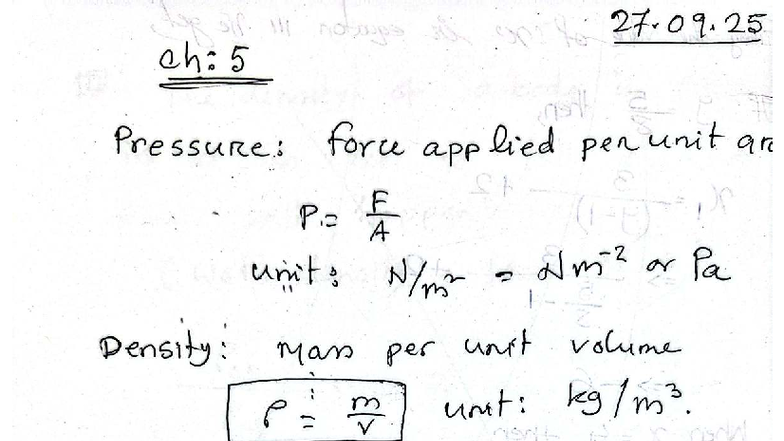 27.09.25
ch: 5
Pressure: force applied per unit ar
P = F/A
unit: N/m² = Nm⁻² or Pa
Density: mass per unit volume
ρ = m/v unit: kg/m³.